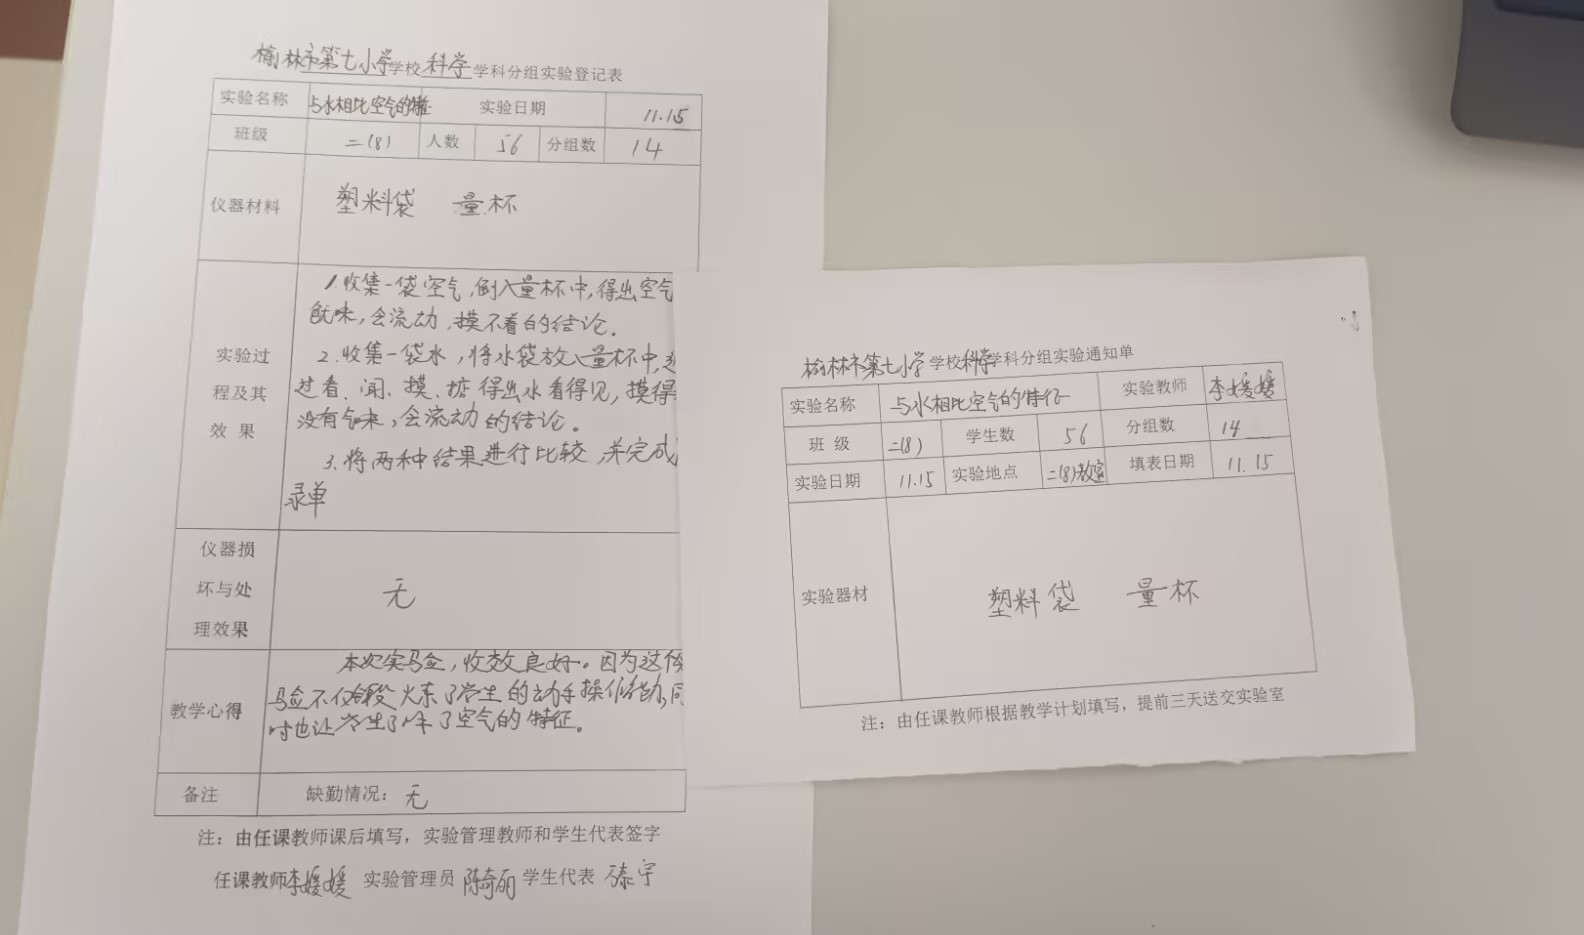 榆林市第七小学学校科学学科分组实验登记表
实验名称 与水相比空气的特征 实验日期 11.15
班级 二(8) 人数 56 分组数 14
仪器材料 塑料袋 量杯
实验过程及其效果
1.收集一袋空气,倒入量杯中,得出空气
味,会流动,摸不着的结论.
2.收集一袋水,将水袋放入量杯中,
过看、闻、摸、掂得出水看得见,摸得
没有气味,会流动的结论。
3.将两种结果进行比较,并完成
录单
仪器损坏与处理效果 无
教学心得
本次实验,收效良好。因为这
验不仅锻炼了学生的动手操作能力,同
时也让学生了解了空气的特征。
备注 缺勤情况:无
注:由任课教师课后填写,实验管理教师和学生代表签字
任课教师李媛媛 实验管理员 陈奇丽 学生代表
榆林市第七小学学校科学学科分组实验通知单
实验名称 与水相比空气的特征 实验教师 李媛媛
班 级 二(8) 学生数 56 分组数 14
实验日期 11.15 实验地点 二(8)教室 填表日期 11.15
实验器材 塑料袋 量杯
注:由任课教师根据教学计划填写,提前三天送交实验室